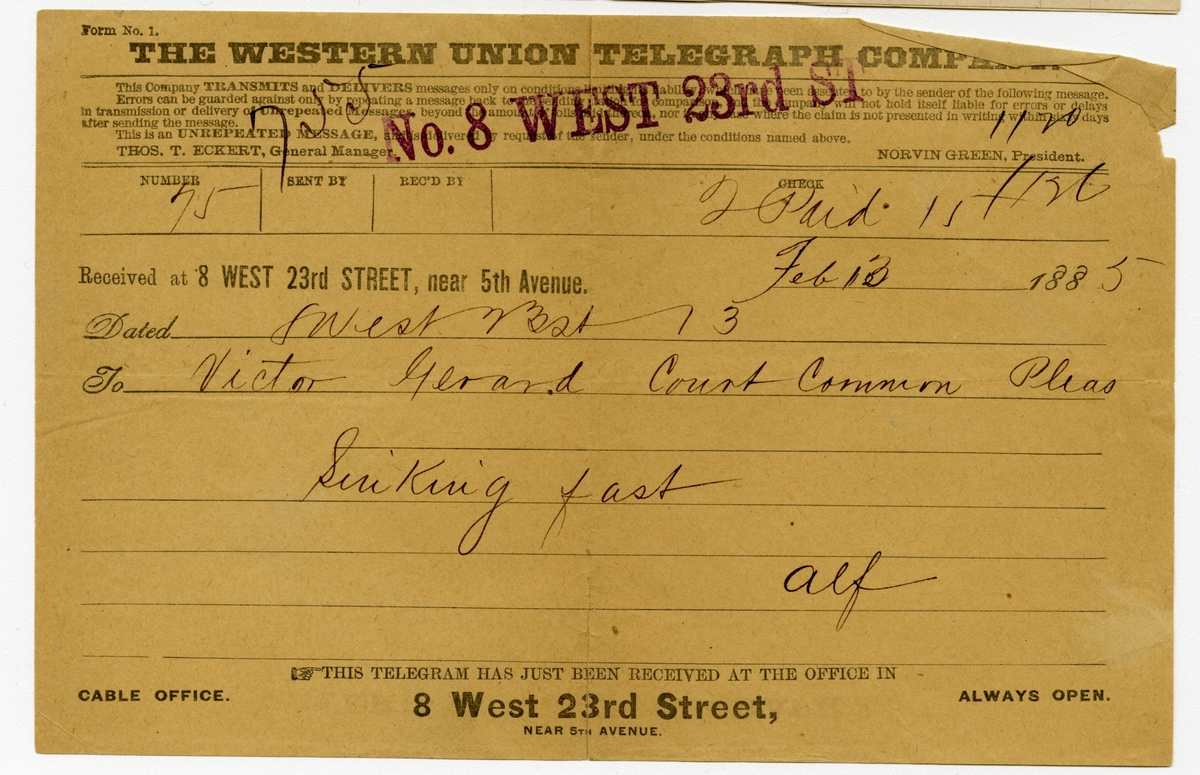 Form No. 1.
THE WESTERN UNION TELEGRAPH COMPA
This Company TRANSMITS and DELIVERS messages only on conditions been to by the sender of the following message.
Errors can be guarded against only by repeating a message back to not hold itself liable for errors or delays
in transmission or delivery of Unrepeated Messages, beyond where the claim is not presented in writing within days
after sending the message.
This is an UNREPEATED MESSAGE, by request of the sender, under the conditions named above.
THOS. T. ECKERT, General Manager. NORVIN GREEN, President.
No. 8 WEST 23rd ST
NUMBER SENT BY REC'D BY CHECK
75 2 Paid 15
Received at 8 WEST 23rd STREET, near 5th Avenue. Feb 13 1885
Dated 8 West 23 st 13
To Victor Gerard Court Common Pleas
Sinking fast
Alf
THIS TELEGRAM HAS JUST BEEN RECEIVED AT THE OFFICE IN
CABLE OFFICE. 8 West 23rd Street, ALWAYS OPEN.
NEAR 5TH AVENUE.